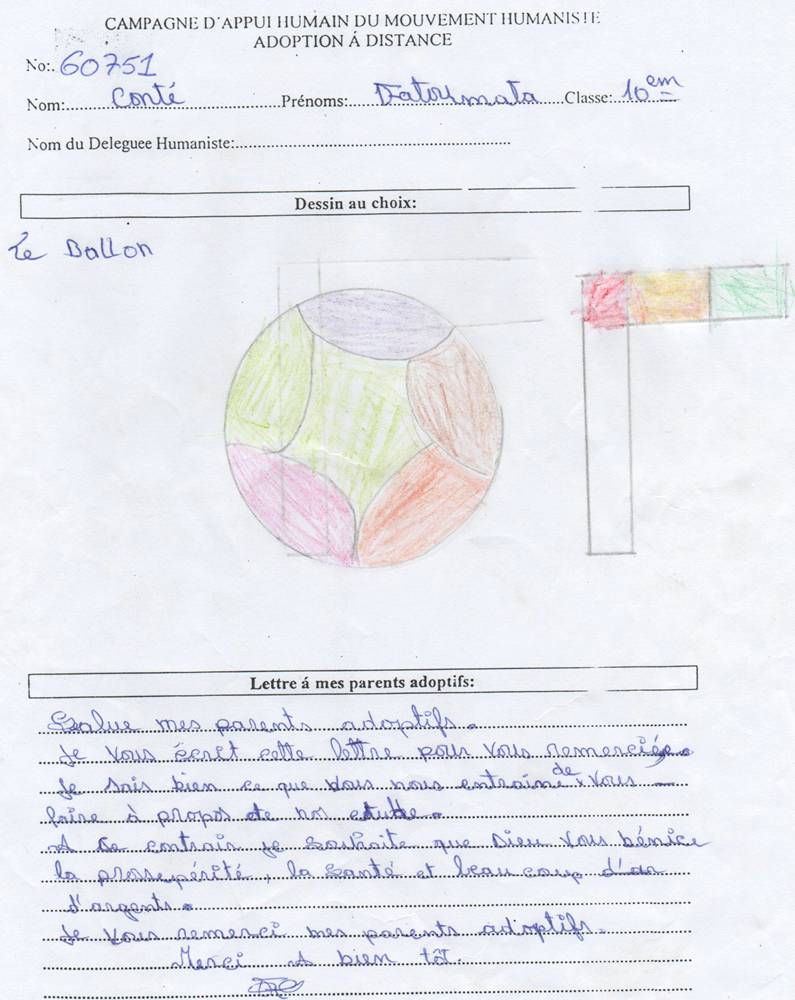 CAMPAGNE D'APPUI HUMAIN DU MOUVEMENT HUMANISTE
ADOPTION Á DISTANCE
No:. 60751
Nom:.......Conté.......Prénoms:....Fatoumata....Classe:..10em
Nom du Deleguee Humaniste:.......
Dessin au choix:
Le Ballon
Lettre á mes parents adoptifs:
Salue mes parents adoptifs.
Je vous écrit cette lettre pour vous remerciée.
Je sais bien ce que vous nous entraine de vous
faire à propos de nos
A ce contrair je souhaite que Dieu vous bénice
la prossepérité, la santé et beau coup
d'argents.
Je vous remerci mes parents adoptifs.
Merci A bien tôt.